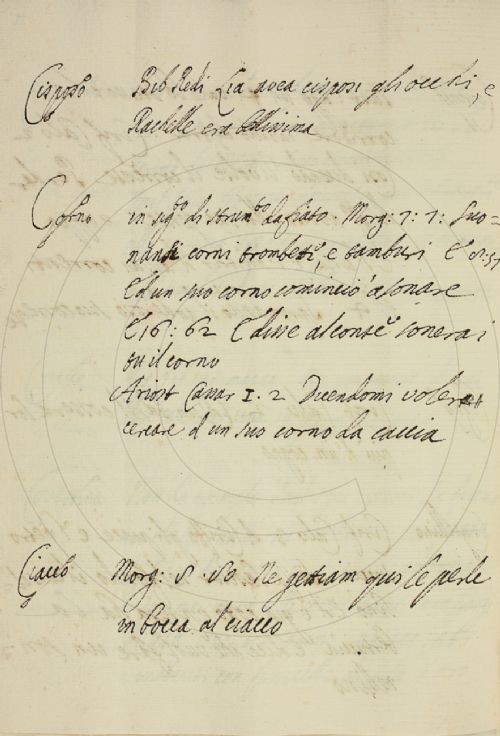 Cisposo Bib Redi Lia avea cisposi gli occhi, e
Rachelle era bellissima
Corno in sig.to di strum.to da fiato. Morg: 7: 7: Suo=
nandi corni trombette, e tamburi
Ed un suo corno cominciò a sonare
E 16: 62 E disse al conte sonerai
tu il corno
Ariost 1. 2 Dicendomi voler
cercare d un suo corno da caccia
Ciacco Morg: 8. 80 Ne gettiam qui le perle
in bocca al ciacco